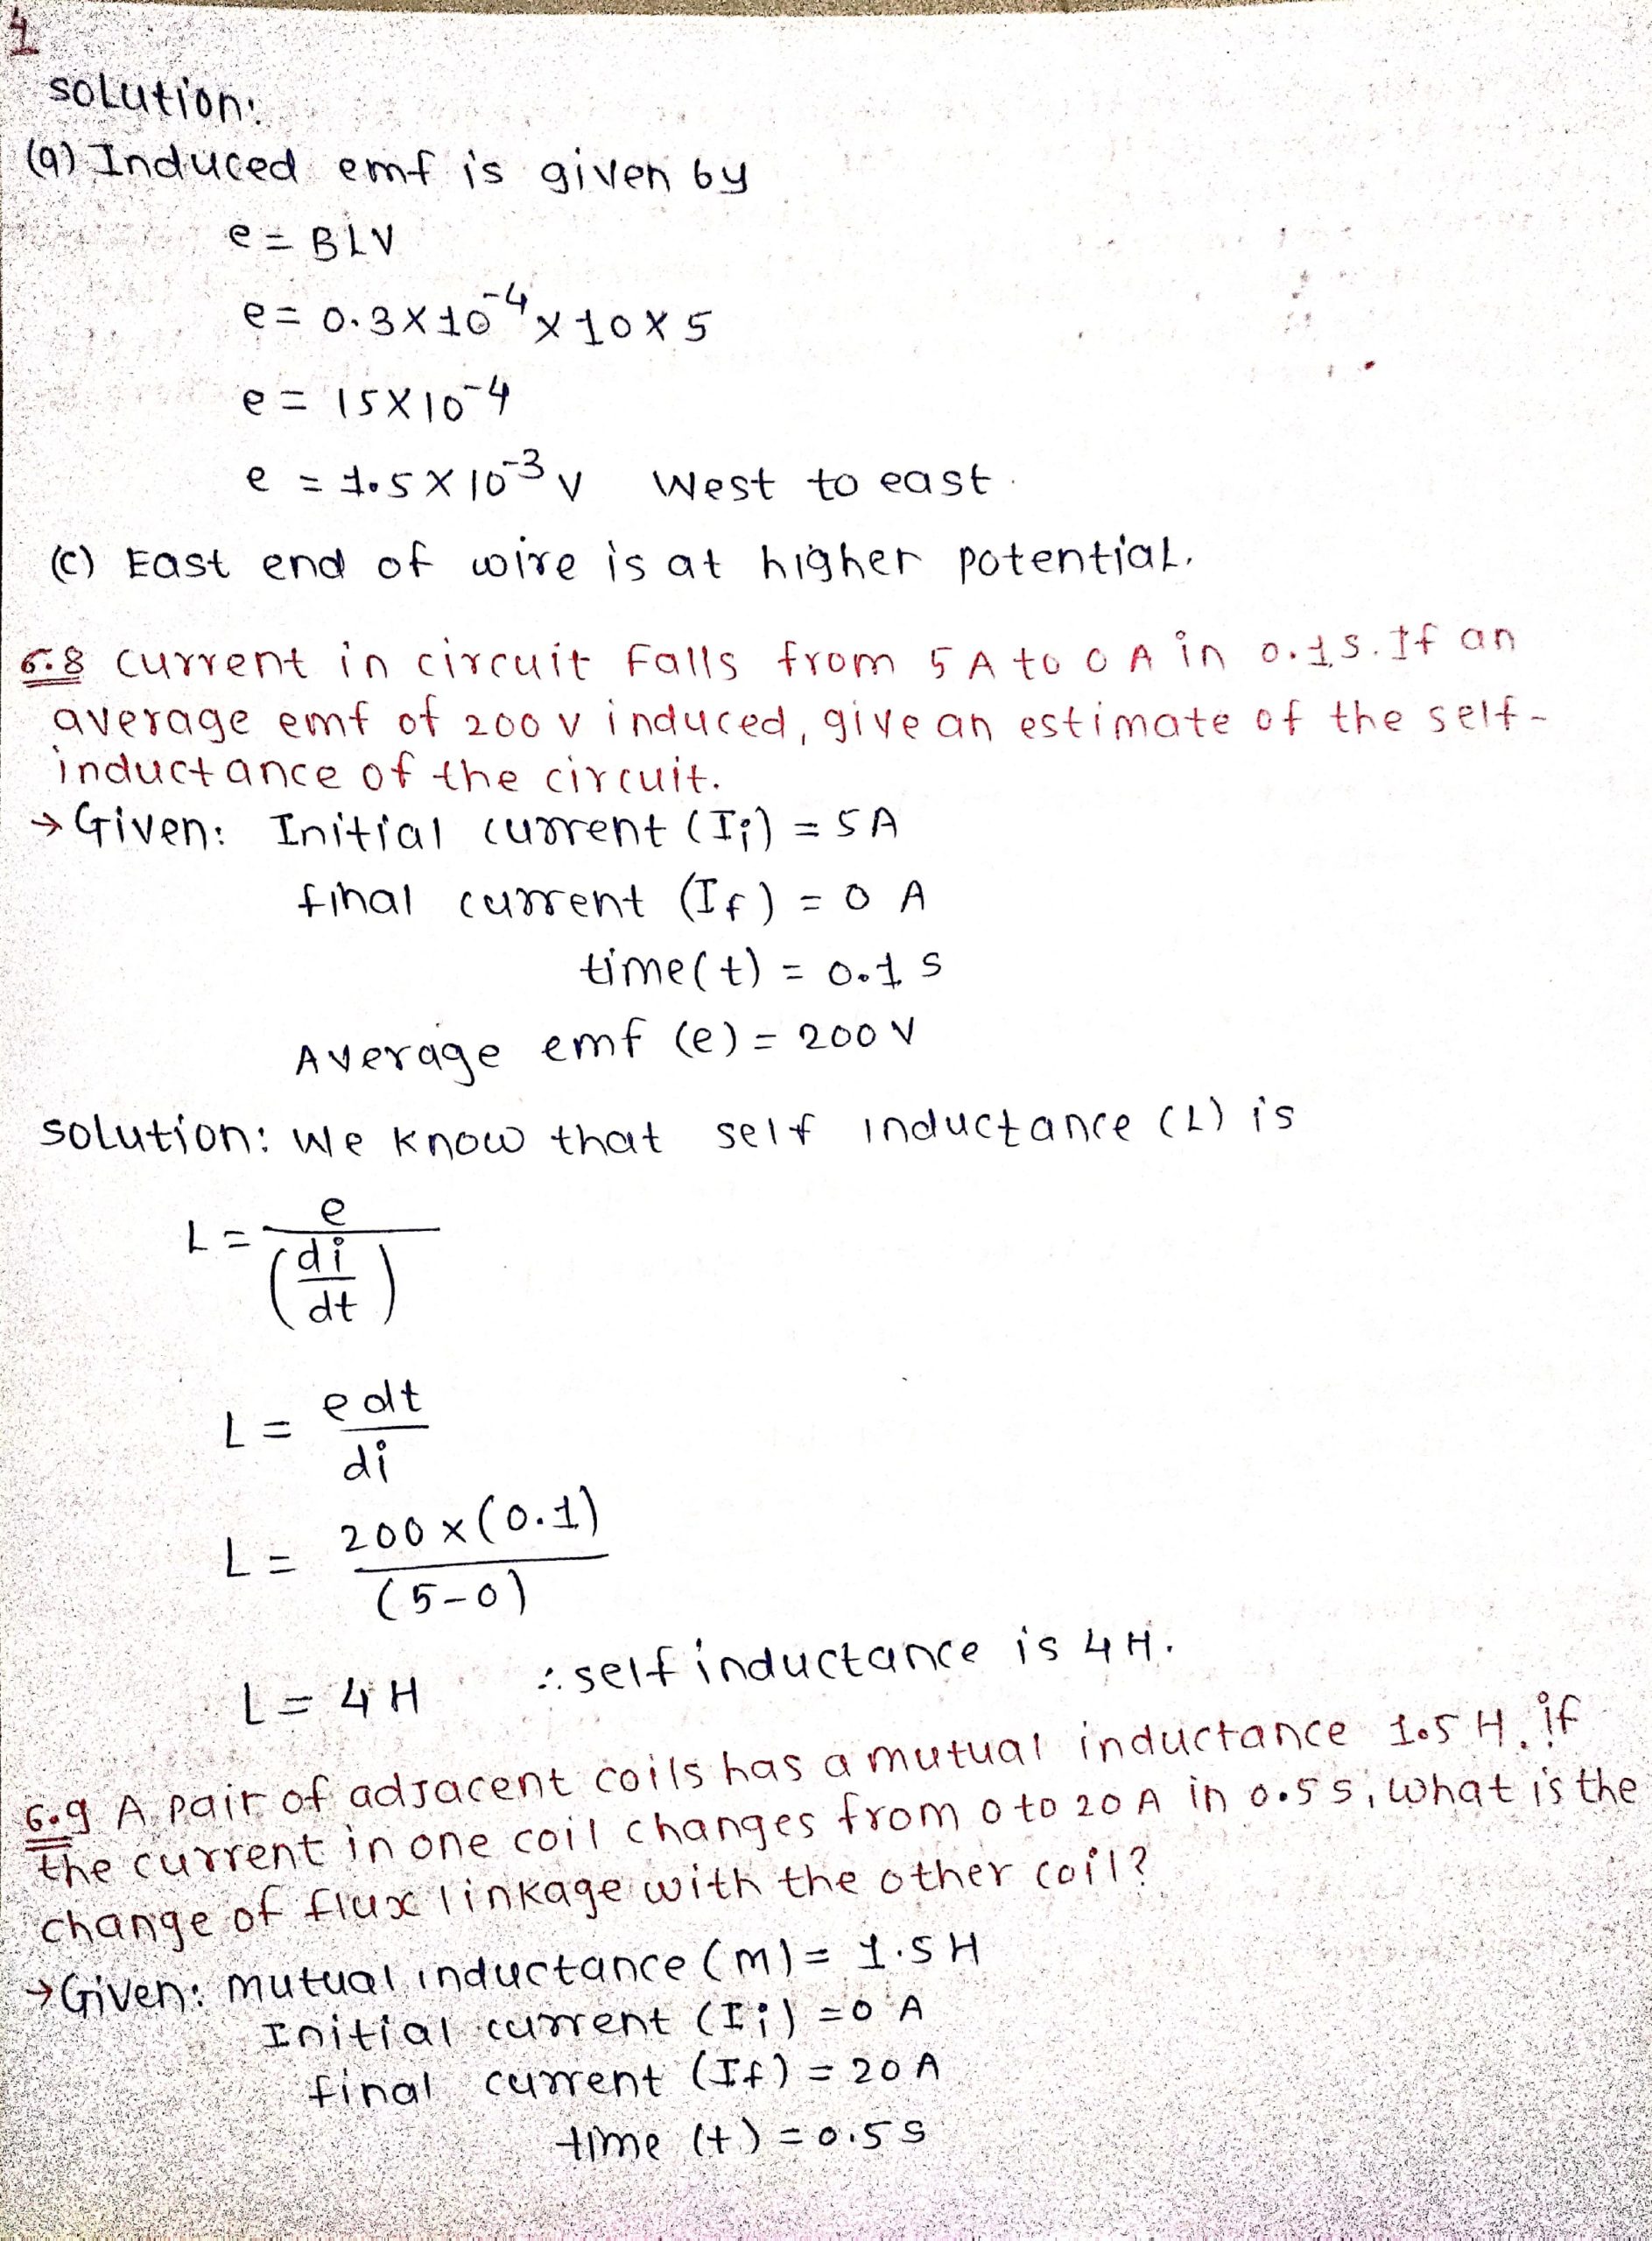 1
Solution:
(a) Induced emf is given by
e = BLV
e = 0.3 × 10⁻⁴ × 10 × 5
e = 15 × 10⁻⁴
e = 1.5 × 10⁻³ V West to east.
(c) East end of wire is at higher potential.
6.8 Current in circuit Falls from 5 A to 0 A in 0.1 s. If an
average emf of 200 v induced, give an estimate of the self-
inductance of the circuit.
→ Given: Initial current (Ii) = 5 A
final current (If) = 0 A
time(t) = 0.1 s
Average emf (e) = 200 V
Solution: We know that self inductance (L) is
L = e / (di/dt)
L = e dt / di
L = 200 × (0.1) / (5-0)
L = 4 H ∴ self inductance is 4 H.
6.9 A pair of adjacent coils has a mutual inductance 1.5 H. if
the current in one coil changes from 0 to 20 A in 0.5 s, what is the
change of flux linkage with the other coil?
→ Given: mutual inductance (m) = 1.5 H
Initial current (Ii) = 0 A
final current (If) = 20 A
time (t) = 0.5 s